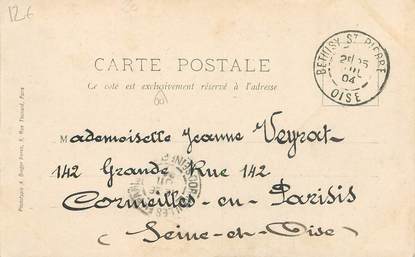 12€
CARTE POSTALE
Ce côté est exclusivement réservé à l'adresse
BÉTHISY ST PIERRE
04
OISE
Mademoiselle Jeanne Veyrat
142 Grande Rue 142
Cormeilles-en-Parisis
(Seine-et-Oise)